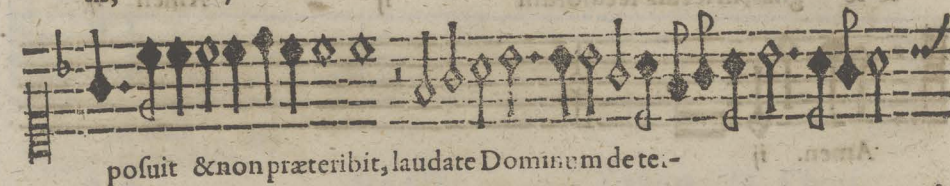 poſuit & non præteribit, laudate Dominum de ter-